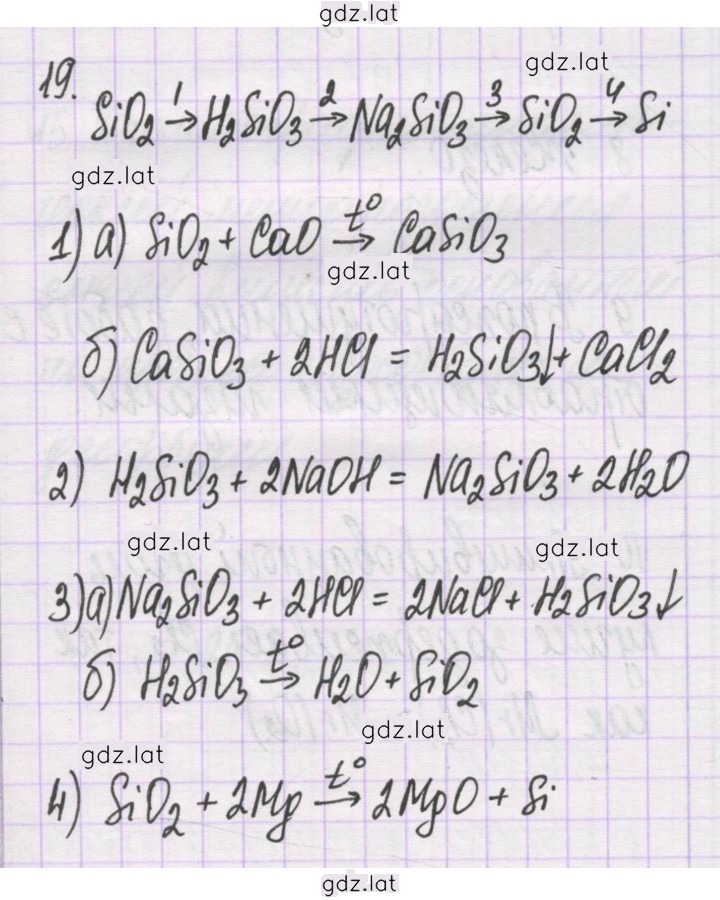 gdz.lat
19.
gdz.lat
SiO₂ →¹ H₂SiO₃ →² Na₂SiO₃ →³ SiO₂ →⁴ Si
gdz.lat
1) а) SiO₂ + CaO →t° CaSiO₃
gdz.lat
б) CaSiO₃ + 2HCl = H₂SiO₃↓ + CaCl₂
2) H₂SiO₃ + 2NaOH = Na₂SiO₃ + 2H₂O
gdz.lat gdz.lat
3) а) Na₂SiO₃ + 2HCl = 2NaCl + H₂SiO₃↓
б) H₂SiO₃ →t° H₂O + SiO₂
gdz.lat
gdz.lat
4) SiO₂ + 2Mg →t° 2MgO + Si
gdz.lat